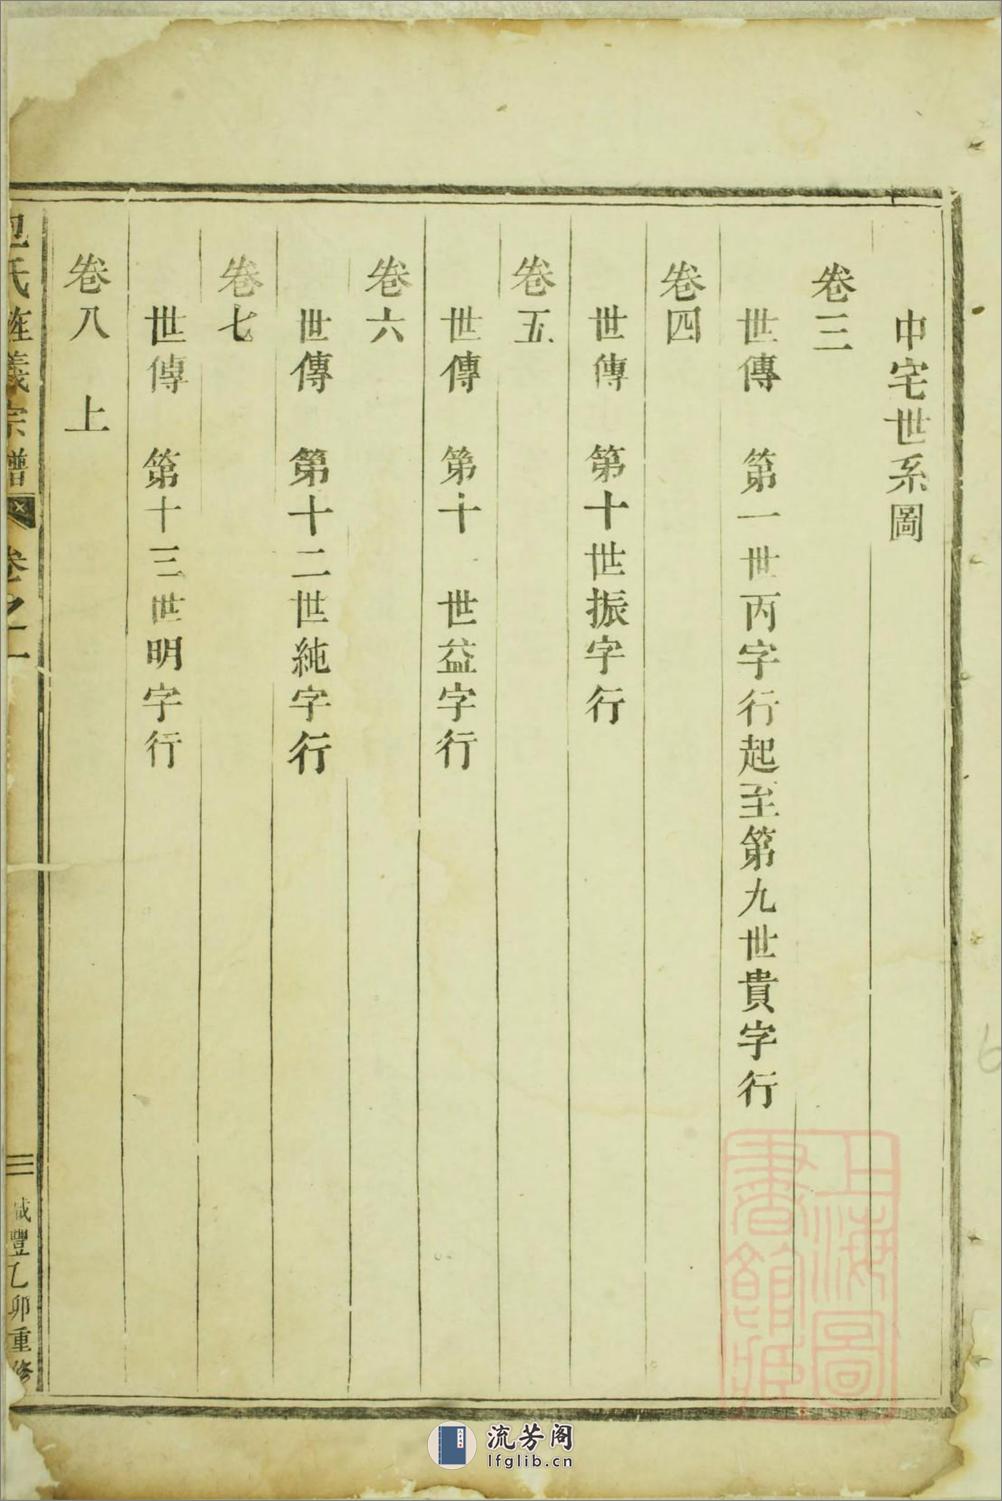 中宅世系圖
卷三
世傳 第一世丙字行起至第九世貴字行
卷四
世傳 第十世振字行
卷五
世傳 第十 世益字行
卷六
世傳 第十二世純字行
卷七
世傳 第十三世明字行
卷八 上
包氏旌義宗譜 卷之一
三 咸豐乙卯重修
上海圖
書館藏
流芳阁
lfglib.cn